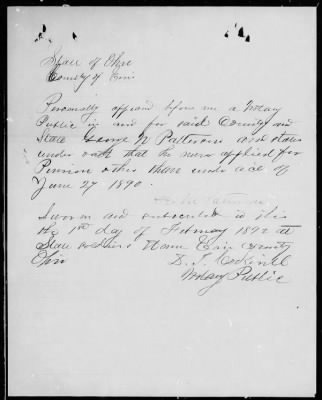 State of Ohio
County of Erie
Personally appeared before me a Notary
Public in and for said County and
State George N Patterson and states
under oath that he never applied for
Pension other than under act of
June 27 1890.
Sworn and subscribed to this
the 1st day of February 1892 at
State Home Erie County
Ohio
D. J.
Notary Public